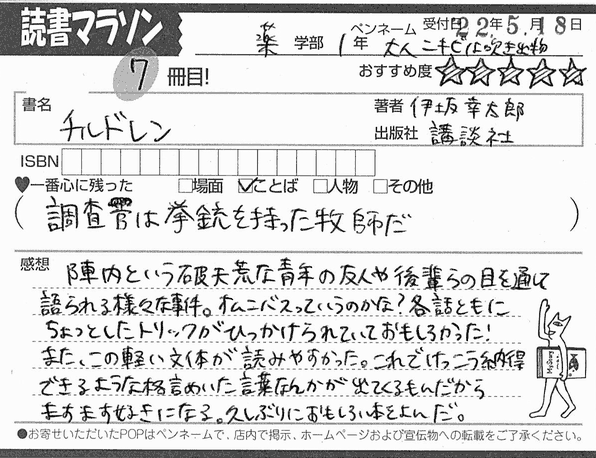 読書マラソン
薬 学部 1年 ペンネーム 大人ニキビは吹き出物 受付日 22年5月18日
7 冊目! おすすめ度 ☆☆☆☆☆
書名 チルドレン
著者 伊坂幸太郎
出版社 講談社
ISBN
♥一番心に残った □場面 ☑ことば □人物 □その他
(調査官は拳銃を持った牧師だ)
感想 陣内という破天荒な青年の友人や後輩らの目を通して
語られる様々な事件。オムニバスっていうのかな?各話ともに
ちょっとしたトリックがひっかけられていておもしろかった!
また、この軽い文体が読みやすかった。これでけっこう納得
できるような格言めいた言葉なんかが出てくるもんだから
ますます好きになる。久しぶりにおもしろい本をよんだ。
●お寄せいただいたPOPはペンネームで、店内で掲示、ホームページおよび宣伝物への転載をご了承ください。